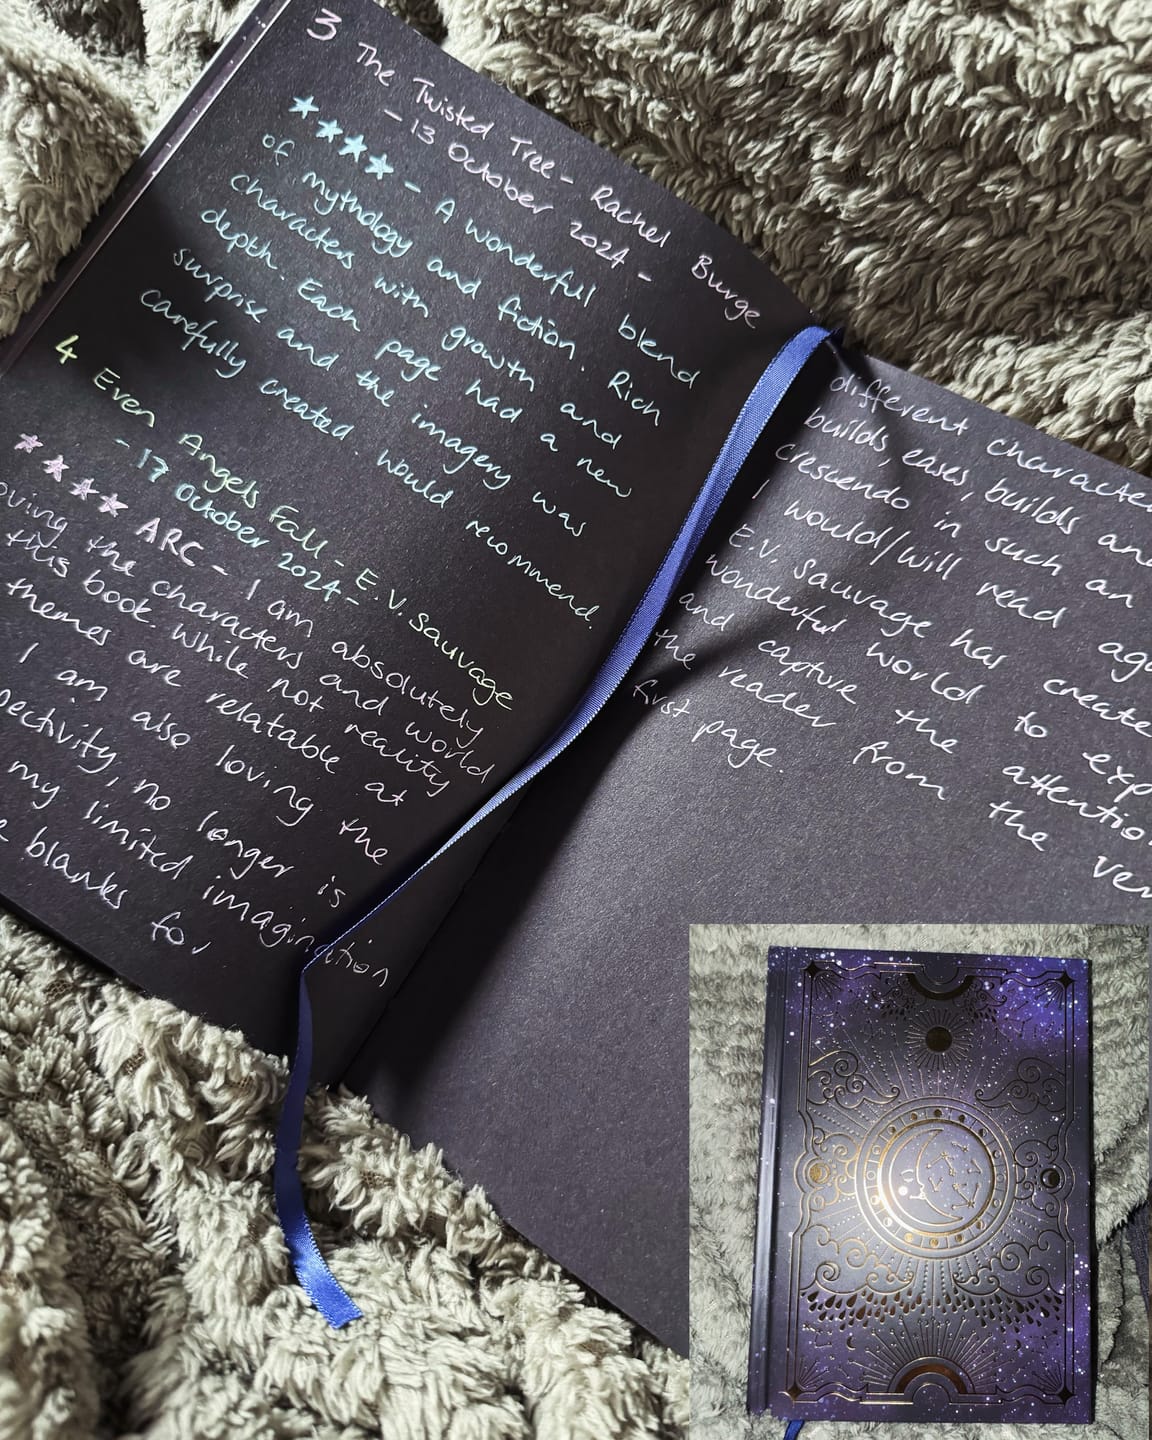 3 The Twisted Tree - Rachel Burge
- 13 October 2024 -
★★★★ - A wonderful blend
of mythology and fiction. Rich
characters with growth and
depth. Each page had a new
surprise and the imagery was
carefully created. Would recommend.
4 Even Angels Fall - E.V. Sauvage
- 17 October 2024 -
★★★★★ ARC - I am absolutely
oving the characters and world
this book while not reality
themes are relatable at
I am also loving the
pectivity, no longer is
my limited imagination
e blanks for
different characte
builds, eases, builds an
crescendo in such an
I would/will read aga
E.V. Sauvage has create
wonderful world to exp
and capture the attentio
the reader from the ver
first page.